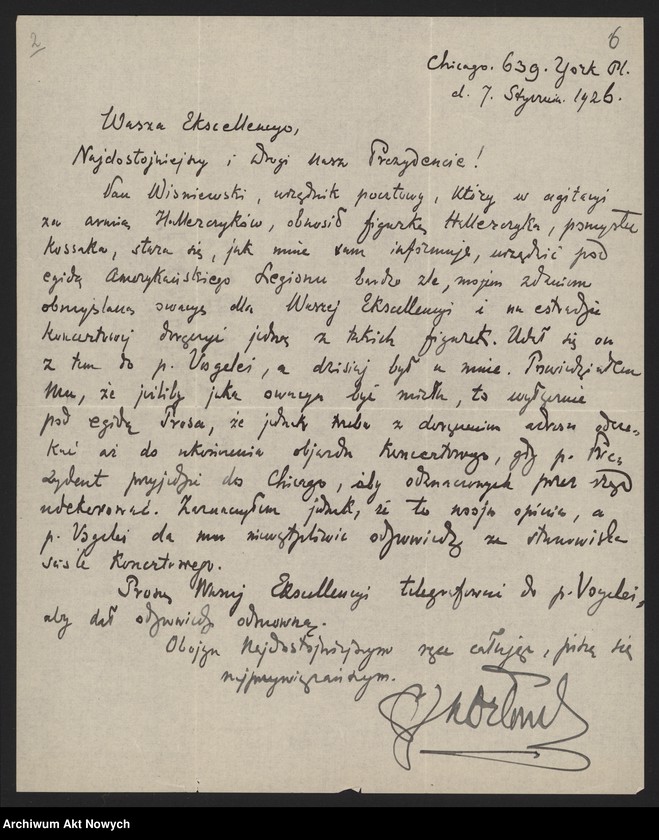 2
6
Chicago. 639. York Pl.
d. 7. Stycznia. 1926.
Wasza Ekscellencyo,
Najdostojniejszy i Drogi nasz Prezydencie!
Pan Wiśniewski, urzędnik pocztowy, który w agitacyi
za armią Hallerczyków, obnosił figurkę Hallerczyka, pomysłu
Kossaka, stara się, jak mnie sam informuje, urządzić pod
egidą Amerykańskiego Legionu bardzo źle, mojem zdaniem
obmyślaną owacyę dla Waszej Ekscellencyi i na estradzie
koncertowej doręczyć jedną z takich figurek. Udał się on
z tem do p. Vogeleś, a dzisiaj był u mnie. Powiedziałem
mu, że jeśliby jaka owacya być miała, to wyłącznie
pod egidą Posła, że jednak trzeba z doręczeniem adresu odcze-
kać aż do ukończenia objazdu koncertowego, gdy p. Pre-
zydent przyjedzie do Chicago, aby odznaczonych przez rząd
udekorować. Zaznaczyłem jednak, że to moja opinia, a
p. Vogeleś da mu niewątpliwie odpowiedź ze stanowiska
ściśle koncertowego.
Proszę Waszej Ekscellencyi telegrafować do p. Vogeleś,
aby dał odpowiedź odmowną.
Obojgu Najdostojniejszym ręce całując, piszę się
najprzywiązańszym.
Archiwum Akt Nowych